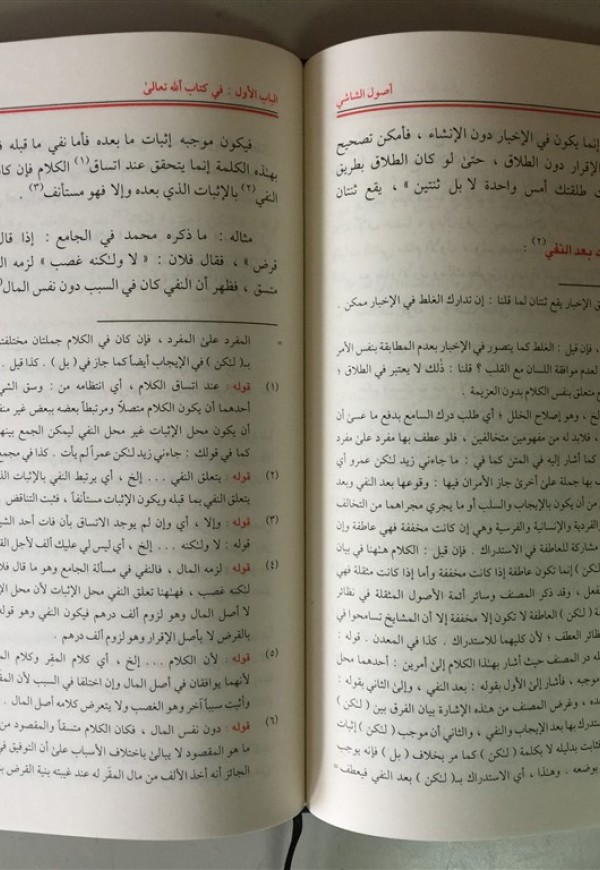 أصول الشاشي
إنما يكون في الإخبار دون الإنشاء ، فأمكن تصحيح
الإقرار دون الطلاق ، حتىٰ لو كان الطلاق بطريق
طلقتك أمس واحدة لا بل ثنتين » ، يقع ثنتان
بعد النفي(٢) :
الإخبار يقع ثنتان لما قلنا : إن تدارك الغلط في الإخبار ممكن .
، فإن قيل : الغلط كما يتصور في الإخبار بعدم المطابقة بنفس الأمر
لعدم موافقة اللسان مع القلب ؟ قلنا : ذٰلك لا يعتبر في الطلاق ؛
متعلق بنفس الكلام بدون العزيمة .
إلخ ، وهو إصلاح الخلل ؛ أي طلب درك السامع بدفع ما عسىٰ أن
، فلابد له من مفهومين متخالفين ، فلو عطف بها مفرد علىٰ مفرد
كما أشار إليه في المتن كما في : ما جاءني زيد لكن عمرو أي
بها جملة علىٰ أخرىٰ جاز الأمران فيها : وقوعها بعد النفي وبعد
من أن يكون بالإيجاب والسلب أو ما يجري مجراهما من التخالف
الفردية والإنسانية والفرسية وهي إن كانت مخففة فهي عاطفة وإن
مشاركة للعاطفة في الاستدراك . فإن قيل : الكلام هٰهنا في بيان
لكن ) إنما تكون عاطفة إذا كانت مخففة وأما إذا كانت مثقلة فهي
، وقد ذكر المصنف وسائر أئمة الأصول المثقلة في نظائر
( لكن ) العاطفة لا تكون إلا مخففة إلا أن المشايخ تسامحوا في
نظائر العطف ؛ لأن كليهما للاستدراك . كذا في المعدن . قوله :
در المصنف حيث أشار بهٰذا الكلام إلىٰ أمرين : أحدهما محل
موجبه ، فأشار إلىٰ الأول بقوله : بعد النفي ، وإلىٰ الثاني بقوله :
، وغرض المصنف من هٰذه الإشارة بيان الفرق بين ( لكن )
بها بعد الإيجاب والنفي ، والثاني أن موجب ( لكن ) إثبات
فثابت بدليله لا بكلمة ( لكن ) كما مر بخلاف ( بل ) فإنه يوجب
بوضعه . وهٰذا ، أي الاستدراك بـ( لكن ) بعد النفي فيعطف=
الباب الأول : في كتاب الله تعالىٰ
فيكون موجبه إثبات ما بعده فأما نفي ما قبله
بهٰذه الكلمة إنما يتحقق عند اتساق(١) الكلام فإن كان
النفي(٢) بالإثبات الذي بعده وإلا فهو مستأنف(٣) .
مثاله : ما ذكره محمد في الجامع : إذا قال
قرض » ، فقال فلان : « لا ولٰكنه غصب » لزمه
متسق ، فظهر أن النفي كان في السبب دون نفس المال
= المفرد علىٰ المفرد ، فإن كان في الكلام جملتان مختلفتان
بـ( لٰكن ) في الإيجاب أيضاً كما جاز في ( بل ) . كذا قيل .
(١) قوله : عند اتساق الكلام ، أي انتظامه من : وسق
أحدهما أن يكون الكلام متصلاً ومرتبطاً بعضه ببعض غير
أن يكون محل الإثبات غير محل النفي ليمكن الجمع بينهما
كما في قولك : جاءني زيد لٰكن عمراً لم يأت . كذا في
(٢) قوله : يتعلق النفي ... إلخ ، أي يرتبط النفي بالإثبات
يتعلق النفي بما قبله ويكون الإثبات مستأنفاً ، فثبت التناقض
(٣) قوله : وإلا ، أي وإن لم يوجد الاتساق بأن فات أحد
قوله : لا ولٰكنه ... إلخ ، أي ليس لي عليك ألف لأجل
(٤) قوله : لزمه المال ، فالنفي في مسألة الجامع وهو ما قال
غصب ، فهٰهنا تعلق النفي بمحل الإثبات لأن محل
لا أصل المال وهو لزوم ألف درهم فيكون النفي وهو قوله
بالقرض لا بأصل الإقرار وهو لزوم ألف درهم .
(٥) قوله : لأن الكلام ... إلخ ، أي كلام المقِر وكلام
لأنهما يوافقان في أصل المال وإن اختلفا في السبب لأن
وأثبت سبباً آخر وهو الغصب ولا يتعرض كلامه أصل المال .
(٦) قوله : دون نفس المال ، فكان الكلام متسقاً والمقصود من
ما هو المقصود لا يبالىٰ باختلاف الأسباب علىٰ أن التوفيق
الجائز أنه أخذ الألف من مال المقَر له عند غيبته بنية القرض